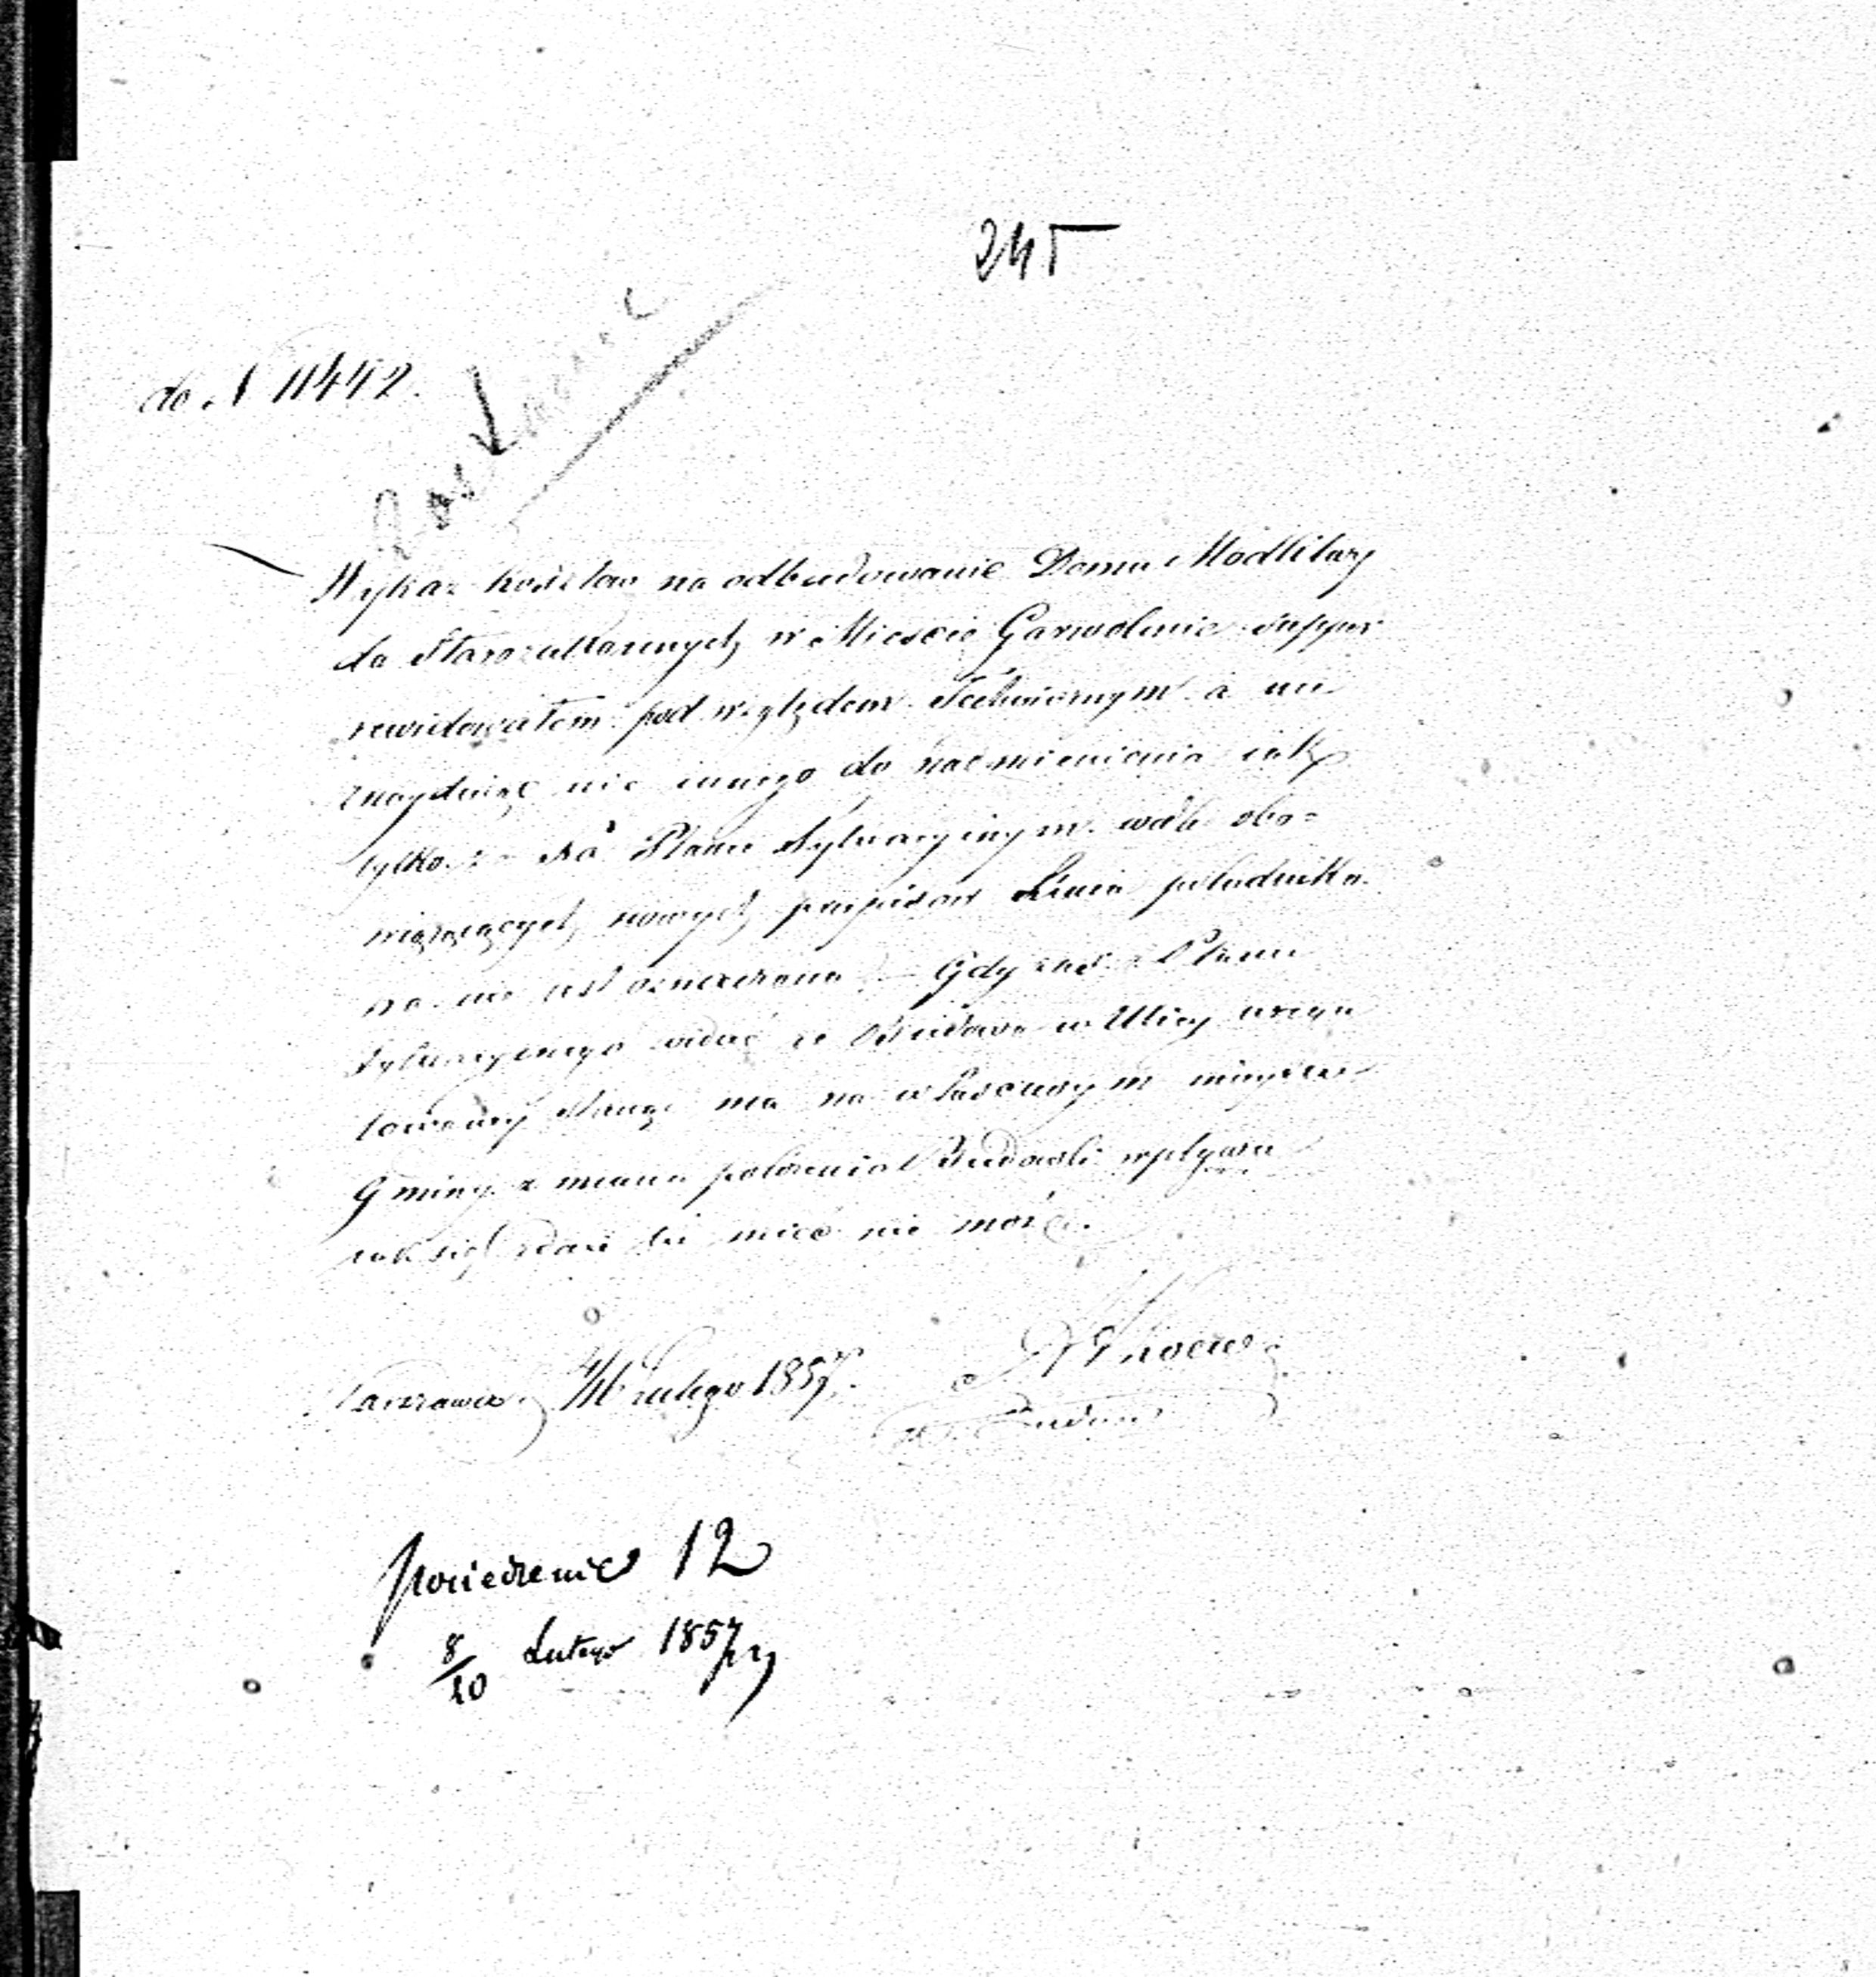 245
do N 11442.
Wykaz kosztów na odbudowanie Domu Modlitwy
dla Starozakonnych w Mieście Garwolinie super
rewidowałem pod względem Technicznym a nie
znajdując nic innego do nadmienienia jak
tylko że Na Planie Sytuacyjnym wedle obo=
wiązujących nowych przepisów Linia południko
wa nie jest oznaczona – Gdy zaś z Planu
Sytuacyjnego widać że Budowa w Ulicy uregu
lowanej stanąć ma na własnym miejscu
Gminy zmiana położenia Budowli wpływu
jak się zdaje tu mieć nie może.
Warszawa 4/16 Lutego 1857 r.
posiedzenie 12
8/20 Lutego 1857 r